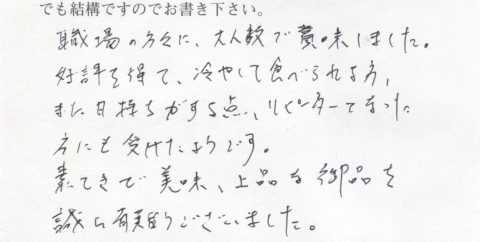 でも結構ですのでお書き下さい。
職場の方々に、大人数で賞味しました。
好評を得て、冷やして食べられる方、
また日持ちがする点、リピーターでまった
方にも受けたようです。
素てきで美味、上品な御品を
誠に有難うございました。